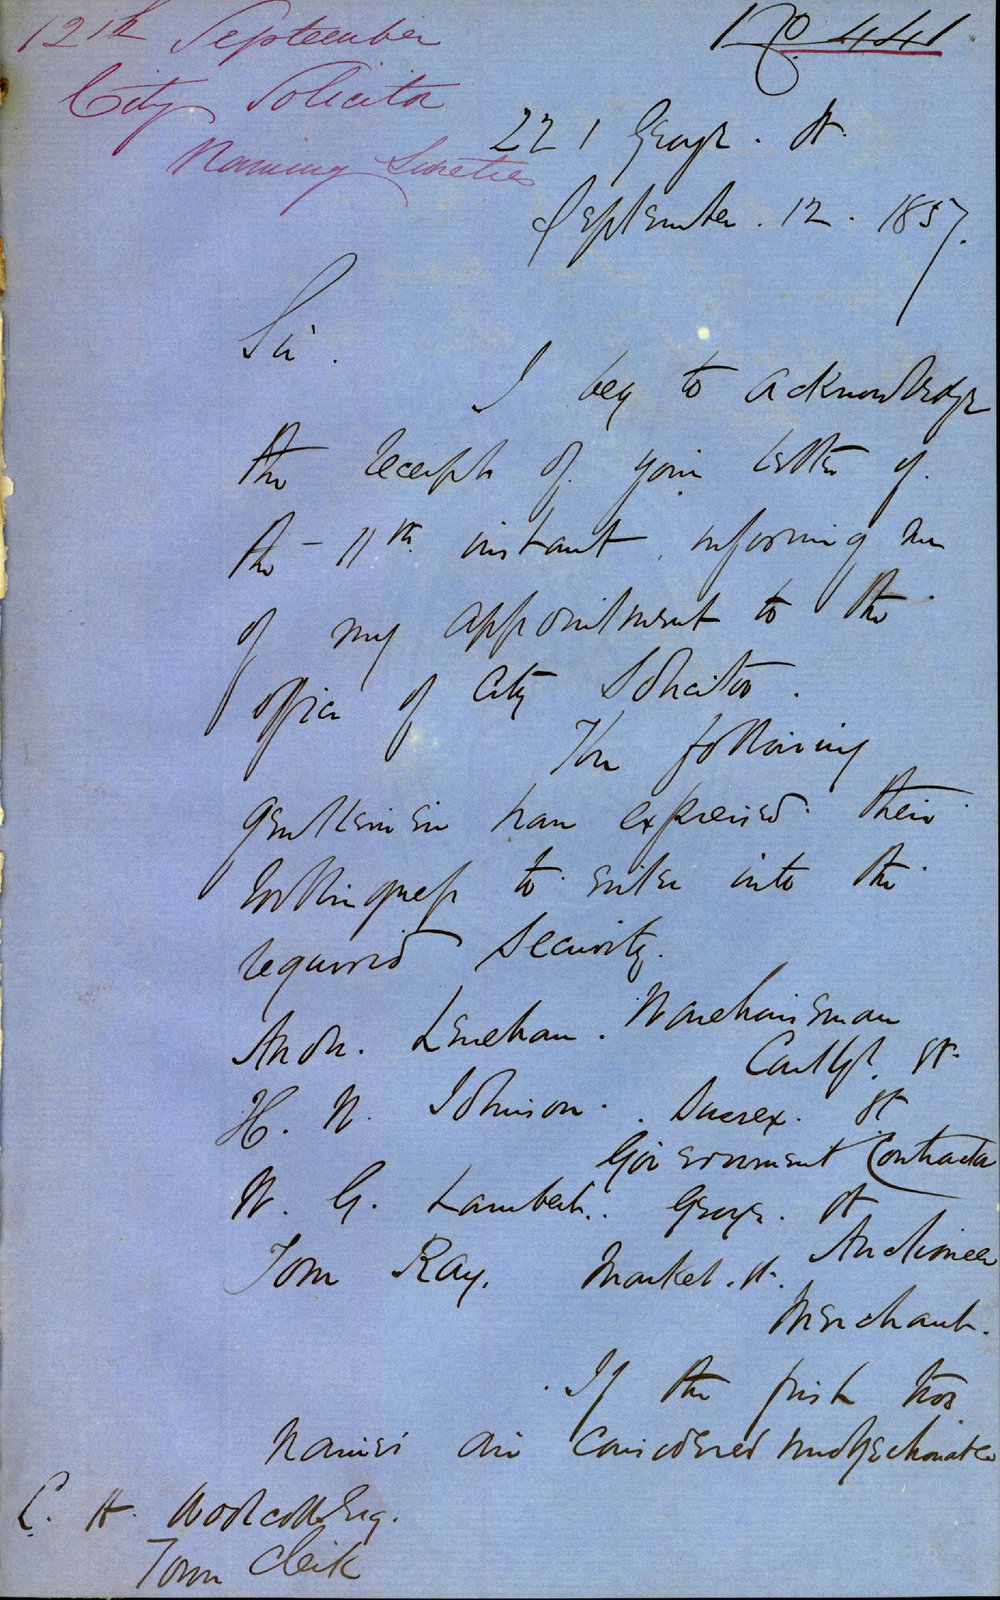 12th September
City Solicitor
Naming Sureties
No. 441
221 George. St.
September. 12. 1857.
Sir.
I beg to acknowledge
the receipt of your letter of
the 11th instant, informing me
of my appointment to the
office of City Solicitor.
The following
gentlemen have expressed their
willingness to enter into the
required security.
Andw. Lenehan. Warehouseman
Castlh. St.
H. N. Johnson. Sussex. St
Government Contractor
W. G. Lambert. George. St
Auctioneer
Tom Ray. Market. St.
Merchant.
If the first two
names are considered unobjectionable
C. H. Woolcott Esq.
Town Clerk